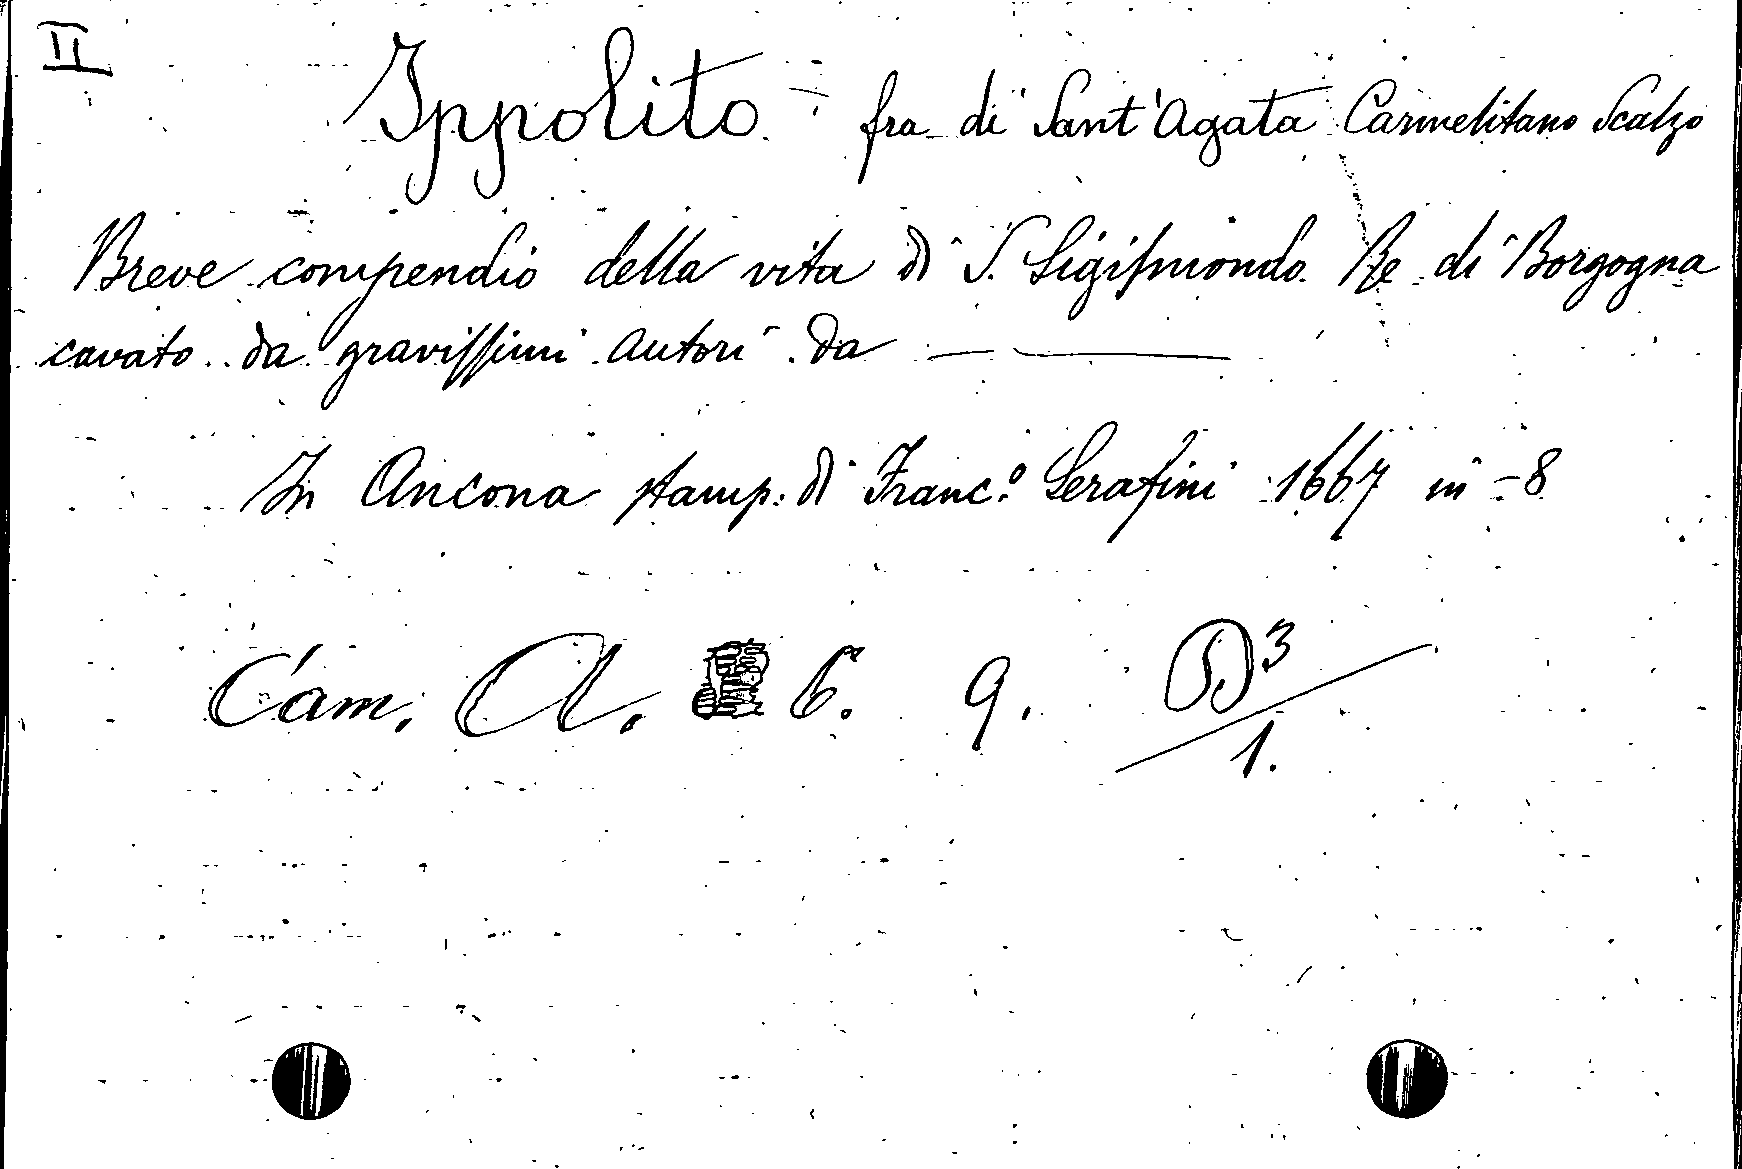 II
Ippolito - fra di Sant'Agata Carmelitano Scalzo
Breve compendio della vita di S. Sigiſmondo Re di Borgogna
cavato da graviſſimi autori da ——
In Ancona stamp: di Franc.º Serafini 1667 in-8
Cam. A. 6. 9. D3/1.